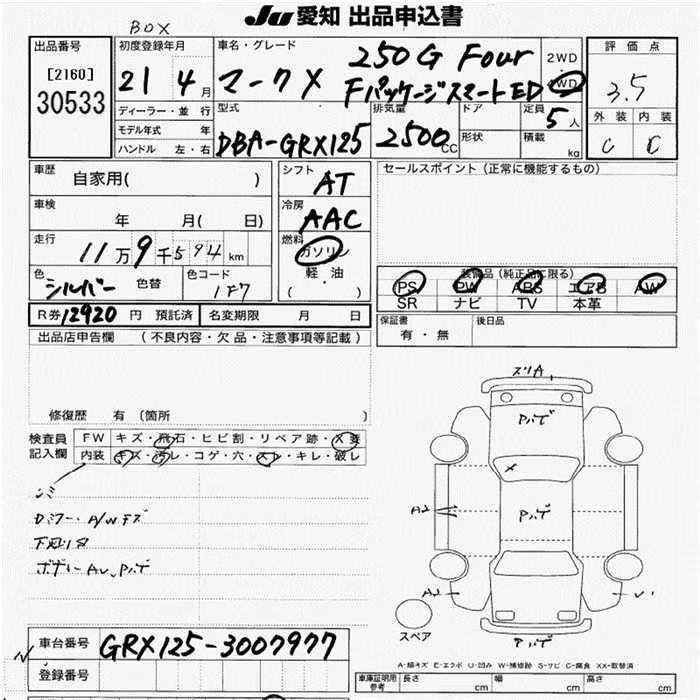 BOX
JU 愛知 出品申込書
出品番号
[2160]
30533
初度登録年月
21 4月
ディーラー・並行
モデル年式 年
ハンドル 左・右
車名・グレード
マークX 250G Four
Fパッケージスマートエディ
2WD
4WD
型式
DBA-GRX125
排気量
2500CC
ドア
形状
定員
5人
積載
kg
評価点
3.5
外装 内装
C C
車歴
自家用( )
車検
年 月( 日)
走行
11万9千594km
色
シルバー
色替
色コード
1F7
シフト
AT
冷房
AAC
燃料
ガソリン
軽・油
( )
セールスポイント(正常に機能するもの)
装備品(純正品に限る)
PS PW ABS エアB AW
SR ナビ TV 本革
R券12920円 預託済
名変期限 月 日
保証書
有・無
後日品
出品店申告欄 (不良内容・欠品・注意事項等記載)
修復歴 有(箇所 )
検査員
記入欄
FW キズ・飛石・ヒビ割・リペア跡・X要
内装 キズ・汚レ・コゲ・穴・スレ・キレ・破レ
シミ
Dミラー・A/Wキズ
下廻りS
ボデーAU、Pハゲ
スリA
Pハゲ
X
Pハゲ
A2
A2
U1
Pハゲ
スペア
A-線キズ E-エクボ U-凹み W-補修跡 S-サビ C-腐食 XX-取替済
車台番号
GRX125-3007977
登録番号
車庫証明用
参考
長さ cm
幅 cm
高さ cm